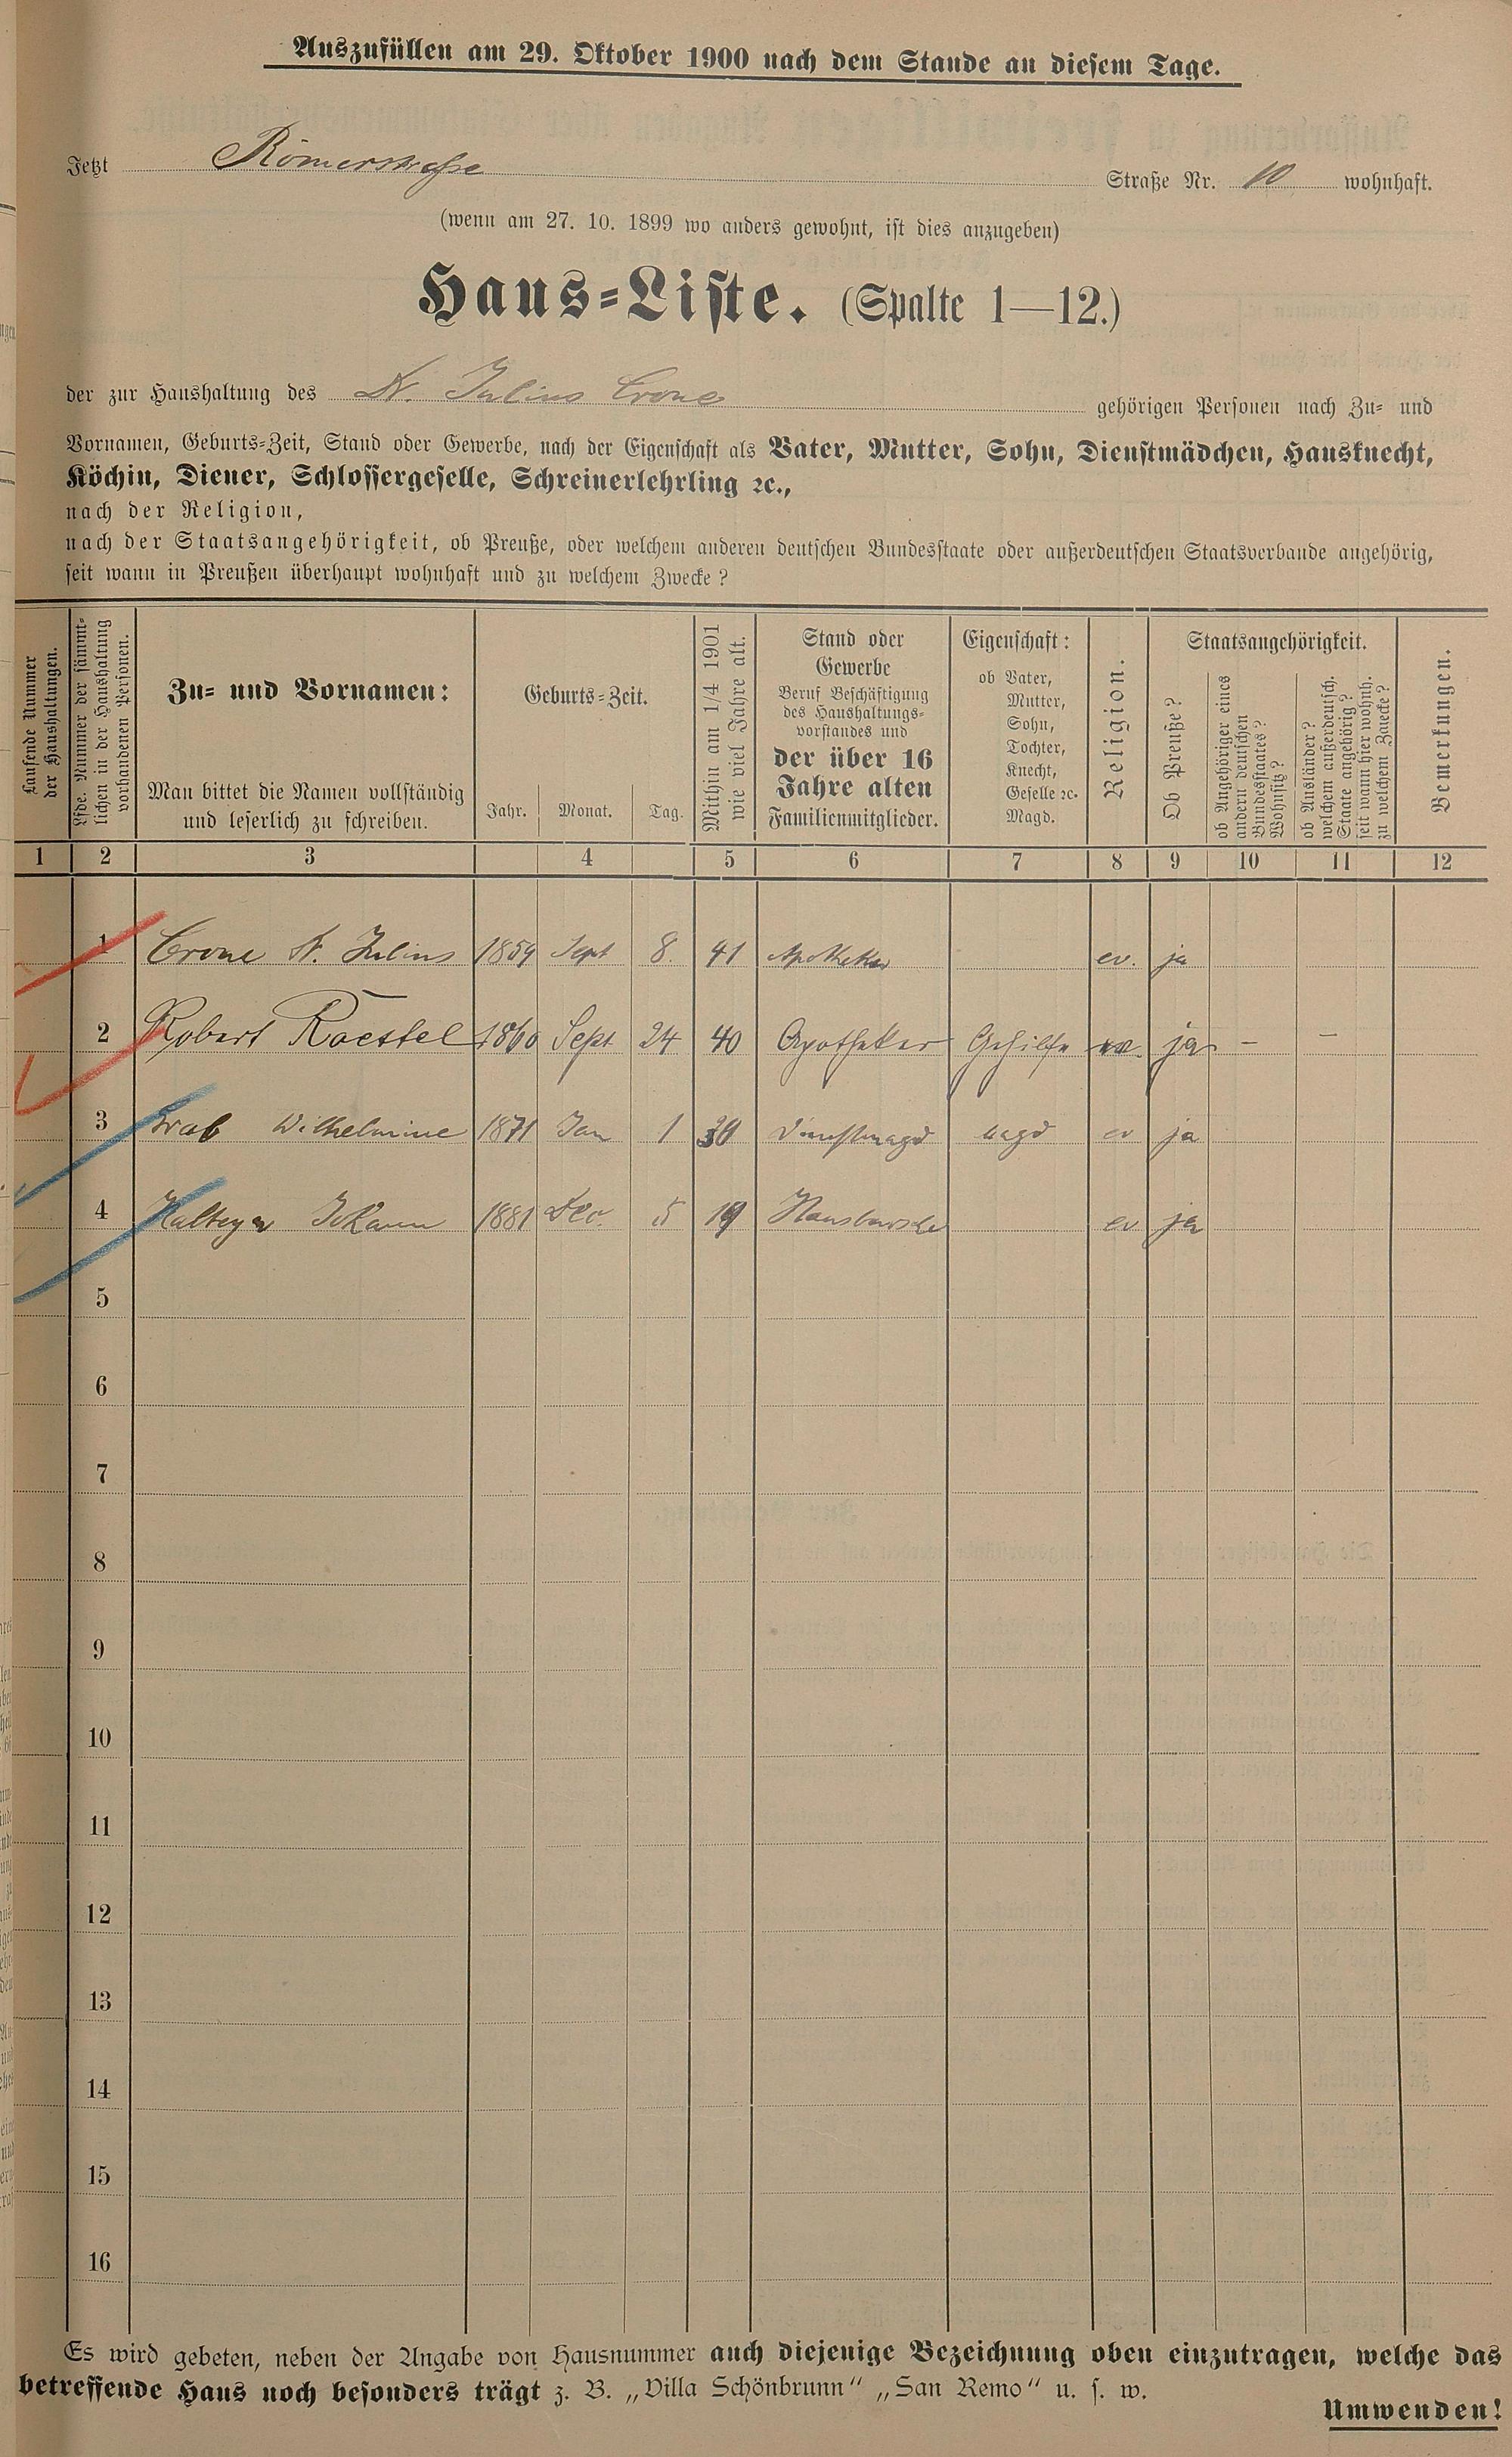 Auszufüllen am 29. Oktober 1900 nach dem Stande an diesem Tage.
Jetzt Römerstrasse Straße Nr. 10 wohnhaft.
(wenn am 27. 10. 1899 wo anders gewohnt, ist dies anzugeben)
Haus-Liste. (Spalte 1—12.)
der zur Haushaltung des Dr. Julius Crone gehörigen Personen nach Zu- und
Vornamen, Geburts-Zeit, Stand oder Gewerbe, nach der Eigenschaft als Vater, Mutter, Sohn, Dienstmädchen, Hausknecht,
Köchin, Diener, Schlossergeselle, Schreinerlehrling ꝛc.,
nach der Religion,
nach der Staatsangehörigkeit, ob Preuße, oder welchem anderen deutschen Bundesstaate oder außerdeutschen Staatsverbande angehörig,
seit wann in Preußen überhaupt wohnhaft und zu welchem Zwecke?
Laufende Nummer
der Haushaltungen.
Lfde. Nummer der sämmt-
lichen in der Haushaltung
vorhandenen Personen.
Zu- und Vornamen:
Man bittet die Namen vollständig
und leserlich zu schreiben.
Geburts-Zeit.
Jahr. Monat. Tag.
Mithin am 1/4 1901
wie viel Jahre alt.
Stand oder
Gewerbe
Beruf Beschäftigung
des Haushaltungs-
vorstandes und
der über 16
Jahre alten
Familienmitglieder.
Eigenschaft:
ob Vater,
Mutter,
Sohn,
Tochter,
Knecht,
Geselle ꝛc.
Magd.
Religion.
Staatsangehörigkeit.
Ob Preuße?
ob Angehöriger eines
andern deutschen
Bundesstaates?
Wohnsitz?
ob Ausländer?
welchem außerdeutsch.
Staate angehörig?
seit wann hier wohnh.
zu welchem Zwecke?
Bemerkungen.
1 2 3 4 5 6 7 8 9 10 11 12
1 Crone Dr. Julius 1859 Sept 8. 41 Apotheker ev. ja
2 Robert Raestel 1860 Sept 24 40 Apotheker Gehilfe ev. ja - -
3 Grab Wilhelmine 1871 Jan 1 30 Dienstmagd Magd ev ja
4 Johann 1881 Dec. 5 19 Hausbursche ev ja
5
6
7
8
9
10
11
12
13
14
15
16
Es wird gebeten, neben der Angabe von Hausnummer auch diejenige Bezeichnung oben einzutragen, welche das
betreffende Haus noch besonders trägt z. B. „Villa Schönbrunn“ „San Remo“ u. s. w.
Umwenden!